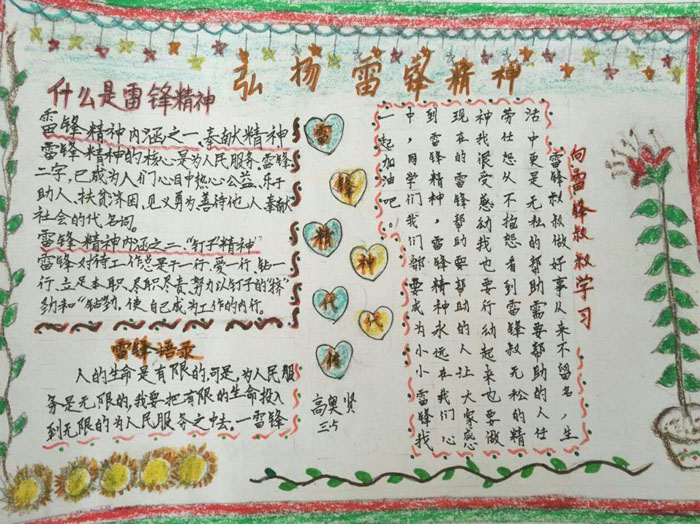 弘扬雷锋精神
什么是雷锋精神
雷锋精神内涵之一:奉献精神
雷锋精神的核心是为人民服务.雷锋
二字,已成为人们心目中热心公益、乐于
助人、扶贫济困、见义勇为、善待他人、奉献
社会的代名词。
雷锋精神内涵之二:"钉子精神"
雷锋对待工作总是干一行、爱一行、钻一
行,立足本职、尽职尽责,努力以钉子的"挤"
劲和"钻"劲,使自己成为工作的内行。
雷锋语录
人的生命是有限的,可是,为人民服
务是无限的,我要把有限的生命投入
到无限的为人民服务之中去.—雷锋
雷
锋
精
神
代
代
传
高奥贤
三5
向雷锋叔叔学习
雷锋叔叔做好事从来不留名,生
活中更是无松的帮助需要帮助的人任
劳任怨从不抱怨看到雷锋叔无松的精
神我很受感动我也要行动起来也要做
现在的雷锋帮助要帮助的人让大家感
到雷锋精神,雷锋精神永远在我们心
中,同学们我们都要成为小小雷锋我
一起加油吧。